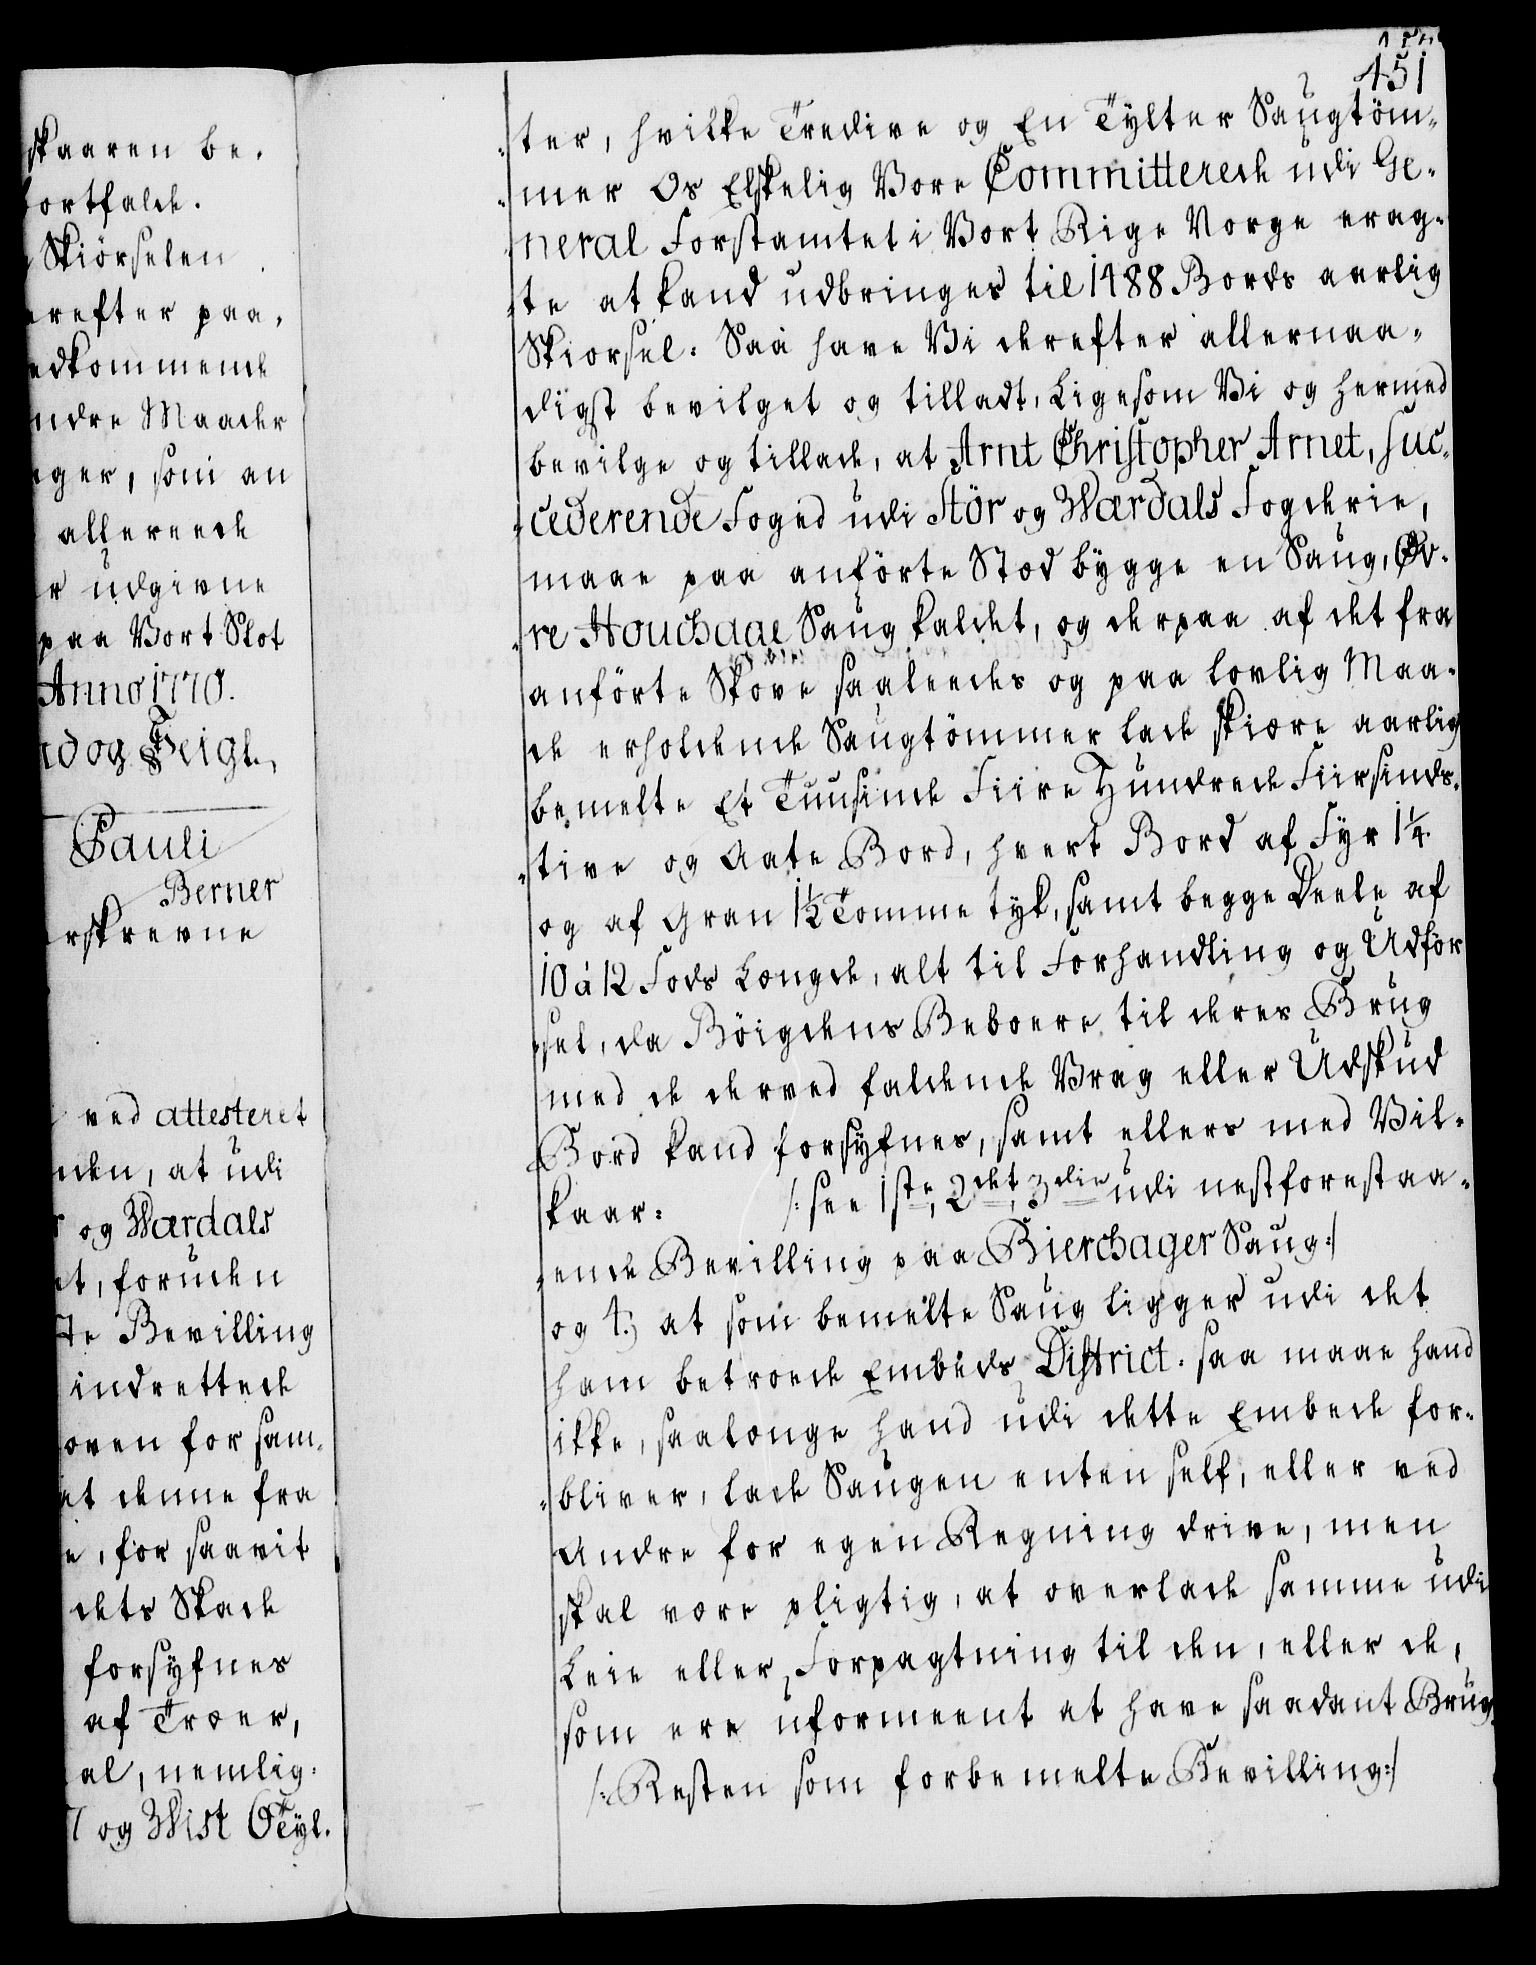 skaaren be-
ortfalde.
Skiörselen
erefter paa-
edkommende
ndre Maader
ger, som an
allereede
r udgivne
paa Vort Slot
Anno 1770.
rd og Seigl.
Pauli
Berner
erskrevne
ved attesteret
nden, at udi
r og Wærdals
et, foruden
te Bevilling
indrettede
oven for sam-
at denne fra
e, for saavit
dets Skade
forsyfnes
af Træer,
al, nemlig:
7 og Wist 6 Tyl.
451
ter, hvilke Tredive og En Tylter Saugtöm-
mer Os Elskelig Vore Committerede udi Ge-
neral Forstamtet i Vort Rige Norge erag-
te at kand udbringes til 1488 Bords aarlig
Skiorsel: Saa have Vi derefter allernaa-
digst bevilget og tilladt, Ligesom Vi og hermed
bevilge og tillade, at Arnt Christopher Arnet, suc-
cederende Foged udi Stör og Wærdals Fogderie,
maae paa anförte Stæd bygge en Saug, Öv-
re Houchaae Saug kaldet, og derpaa af det fra
anförte Skove saaleedes og paa lovlig Maa-
de erholdende Saugtömmer lade skiære aarlig
bemelte Et Tuusinde Fiire Hundrede Fiirsinds-
tive og Aate Bord, hvert Bord af Fyr 1¼
og af Gran 1½ Tomme tyk, samt begge Deele af
10 á 12 Fods Længde, alt til Forhandling og Udför
sel, da Böigdens Beboere til deres Brug
med de derved faldende Vrag eller Udskud
Bord kand forsyfnes, samt ellers med Vil-
kaar: /: see 1ste, 2det, 3die udi nestforestaa-
ende Bevilling paa Bierchager Saug :/
og 4.) at som bemelte Saug ligger udi det
ham betroede Embeds District, saa maae hand
ikke, saalænge hand udi dette Embede for-
bliver, lade Saugen enten self, eller ved
Andre for egen Regning drive, men
skal være pligtig, at overlade samme udi
Leie eller Forpagtning til den, eller de,
som ere uformeent at have saadant Brug.
/: Resten som forbemelte Bevilling :/